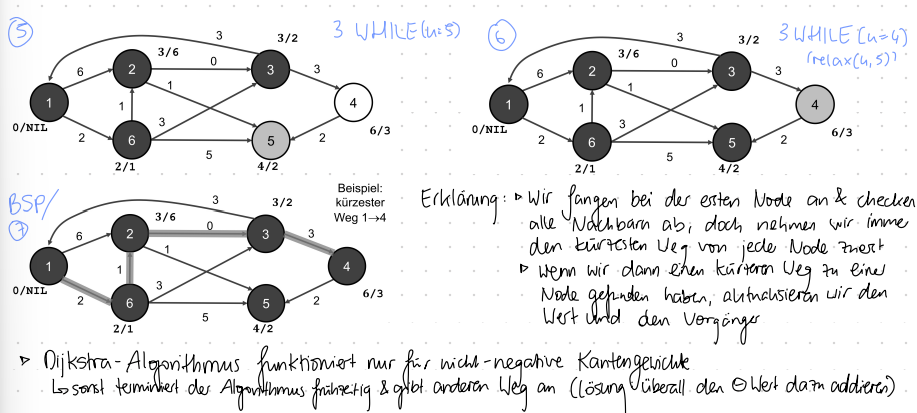 5
3 WHILE(u=5)
6
3 WHILE (u=4)
(relax(4,5))
3
3/2
3/6
0
3
6
1
2
3
4
1
1
3
0/NIL
2
6
5
5
2
6/3
2/1
4/2
3
3/2
3/6
0
3
6
1
2
3
4
1
1
3
0/NIL
2
6
5
5
2
6/3
2/1
4/2
BSP/
7
Beispiel:
kürzester
Weg 1→4
3
3/2
3/6
0
3
6
1
2
3
4
1
1
3
0/NIL
2
6
5
5
2
6/3
2/1
4/2
Erklärung: ▹ Wir fangen bei der ersten Node an & checken
alle Nachbarn ab, doch nehmen wir imme
den kürzesten Weg von jede Node zuerst
▹ Wenn wir dann einen kürzeren Weg zu einer
Node gefunden haben, aktualisieren wir den
Wert und den Vorgänger
▹ Dijkstra-Algorithmus funktioniert nur für nicht-negative Kantengewichte
↳ sonst terminiert der Algorithmus frühzeitig & gibt anderen Weg an (Lösung überall den ⊖ Wert dazu addieren)